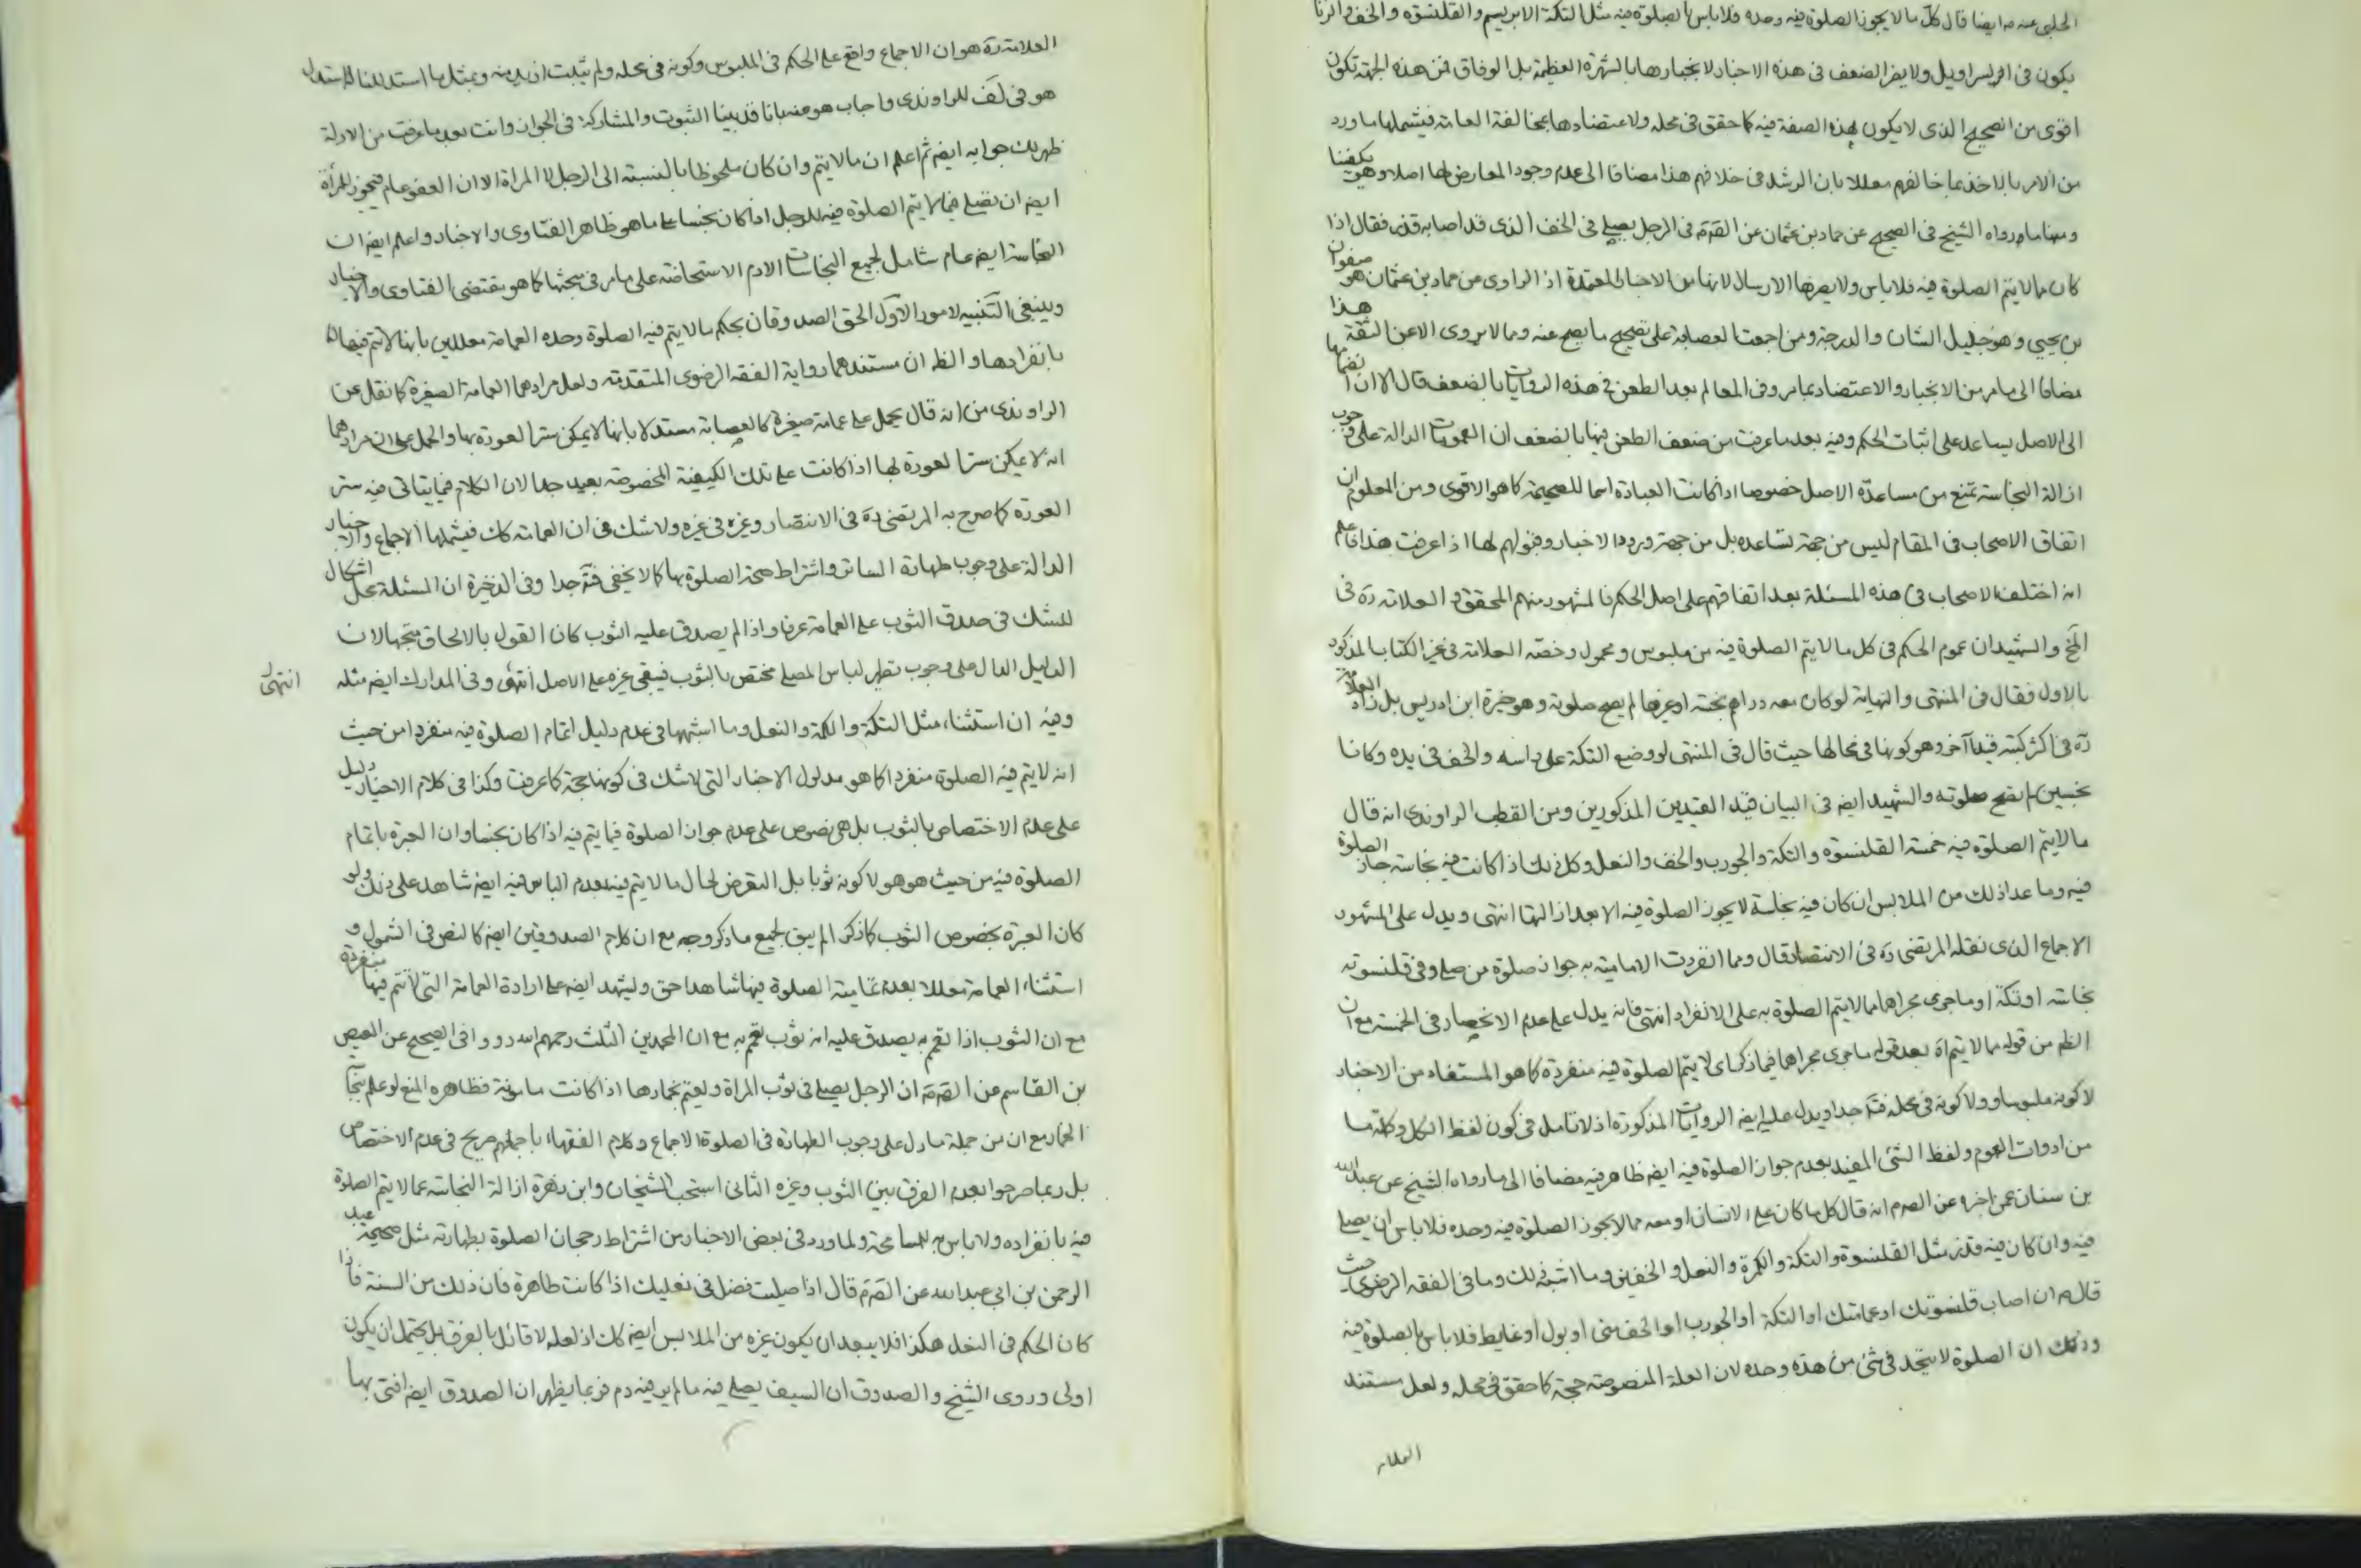 الحلبى عنه ايضا قال كل ما لا يجوز الصلوة فيه وحده فلا باس بالصلوة فيه مثل التكة الابريسم والقلنسوة والخف والزنا
يكون فى السراويل ولا يضر الضعف فى هذه الاخبار لانجبارها بالشهرة العظيمة بل الوفاق فمن هذه الجهة تكون
اقوى من الصحيح الذى لا يكون بهذه الصفة فيه كما حقق فى محله ولاعتضادها بمخالفة العامة فيشملها ما ورد
من الامر بالاخذ بما خالفهم معللا بان الرشد فى خلافهم هذا مضافا الى عدم وجود المعارض لها اصلا وهو يكفينا
ومنها ما رواه الشيخ فى الصحيح عن حماد بن عثمان عن الصّم فى الرجل يصلى فى الخف الذى قد اصابه قذر فقال اذا
كان مما لا يتم الصلوة فيه فلا باس ولا يضرها الارسال لانها من الاخبار المعتمدة اذ الراوى من حماد بن عثمان هو صفوان
بن يحيى وهو جليل الشان والدرجة ومن اجمعت العصابة على تصحيح ما يصح عنه ومما لا يروى الا عن الثقة هذا
مضافا الى ما مر من الانجبار والاعتضاد بما مر وفى المعالم بعد الطعن فى هذه الروايات بالضعف قال الا ان انضمامها
الى الاصل يساعد على اثبات الحكم وفيه بعد ما عرفت من ضعف الطعن فيها بالضعف ان العمومات الدالة على وجوب
ازالة النجاسة تمنع من مساعدة الاصل خصوصا اذا كانت العبادة اسما للصحيحة كما هو الاقوى ومن المعلوم ان
اتفاق الاصحاب فى المقام ليس من جهة تساعده بل من جهة ورود الاخبار وقبولهم لها اذا عرفت هذا فاعلم
انه اختلف الاصحاب فى هذه المسئلة بعد اتفاقهم على اصل الحكم فالمشهور منهم المحقق و العلامة ره فى
والشهيدان عموم الحكم فى كل ما لا يتم الصلوة فيه من ملبوس ومحمول وخصه العلامة فى غير الكتاب المذكور
بالاول فقال فى المنتهى والنهاية لو كان معه دراهم نجسة او غيرها لم يصح صلوته وهو خيرة ابن ادريس بل زاد العلامة
ره فى اكثر كتبه قيدا آخر وهو كونها فى محالها حيث قال فى المنتهى لو وضع التكة على راسه والخف فى يده وكانا
نجسين لم يصح صلوته والشهيد ايضا فى البيان قيد القيدين المذكورين ومن القطب الراوندى انه قال
ما لا يتم الصلوة فيه خمسة القلنسوة والتكة والجورب والخف والنعل وكل ذلك اذا كانت فيه نجاسة جاز الصلوة
فيه وما عدا ذلك من الملابس ان كان فيه نجاسة لا يجوز الصلوة فيه الا بعد ازالتها انتهى ويدل على المشهور
الاجماع الذى نقله المرتضى ره فى الانتصار قال ومما انفردت الامامية به جواز صلوة من صلى وفى قلنسوته
نجاسة او تكة او ما جرى مجراهما مما لا يتم الصلوة به على الانفراد انتهى فانه يدل على عدم الانحصار فى الخمسة مع ان
الظم من قوله مما لا يتم اه بعد قوله ما جرى مجراهما فيما ذكر اى لا يتم الصلوة فيه منفردة كما هو المستفاد من الاخبار
لا كونه ملبوسا ولا كونه فى محله فتّه جدا ويدل عليه ايضا الروايات المذكورة اذ لا تامل فى كون لفظ الكل وكلمة ما
من ادوات العموم ولفظ الشئ المفيد بعدم جواز الصلوة فيه ايضا ظاهر فيه مضافا الى ما رواه الشيخ عن عبدالله
بن سنان عمن اخبره عن الصم انه قال كل ما كان على الانسان او معه مما لا يجوز الصلوة فيه وحده فلا باس ان يصلى
فيه وان كان فيه قذر مثل القلنسوة والتكة والكمرة والنعل والخفين وما اشبه ذلك وما فى الفقه الرضوى حيث
قال م ان اصاب قلنسوتك او عمامتك او التكة او الجورب او الخف منى او بول او غايط فلا باس بالصلوة فيه
وذلك ان الصلوة لا يتخذ فى شئ من هذه وحده لان العلة المنصوصة حجة كما حقق فى محله ولعل مستند
العلامه
العلامة ره هو ان الاجماع واقع على الحكم فى الملبوس وكونه فى محله ولم يثبت ازيد منه وبمثل ما استدللنا له استدل
هو فى لَف للراوندى واجاب هو عنه بانا قد بينا الثبوت والمشاركة فى الجواز وانت بعد ما عرفت من الادلة
ظهر لك جوابه ايضا ثم اعلم ان ما لا يتم وان كان ملحوظا بالنسبة الى الرجل لا المراة الا ان العفو عام فيجوز للمرأة
ايضا ان تصلى فيما لا يتم الصلوة فيه للرجل اذا كان نجسا على ما هو ظاهر الفتاوى والاخبار واعلم ايضا ان
النجاسة ايضا عام شامل لجميع النجاسات الا دم الاستحاضة على ما مر فى مبحثها كما هو مقتضى الفتاوى والاخبار
وينبغى التنبيه لامور الاول الحق الصدوقان بحكم ما لا يتم فيه الصلوة وحده العمامة معللين بانها لا تتم فيها
بانفرادها والظ ان مستندهما رواية الفقه الرضوى المتقدمة ولعل مرادهما العمامة الصغيرة كما نقل عن
الراوندى من انه قال يحمل على عمامة صغيرة كالعصابة مستدلا بانها لا يمكن ستر العورة بها والحمل على ان مرادهما
انه لا يمكن ستر العورة بها اذا كانت على تلك الكيفية المخصوصة بعيد جدا لان الكلام فيما يتاتى فيه ستر
العورة كما صرح به المرتضى ره فى الانتصار وغيره فى غيره ولا شك فى ان العمامة كك فيشملها الاجماع والاخبار
الدالة على وجوب طهارة الساتر واشتراط صحة الصلوة بها كما لا يخفى فتّه جدا وفى الذخيرة ان المسئلة محل اشكال
للشك فى صدق الثوب على العمامة عرفا واذا لم يصدق عليه الثوب كان القول بالالحاق متجها لان
الدليل الدال على وجوب تطهير لباس المصلى مختص بالثوب فيبقى غيره على الاصل انتهى وفى المدارك ايضا مثله انتهى
وفيه ان استثناء مثل التكة والكمة والنعل وما اشبهها فى عدم دليل اتمام الصلوة فيه منفردا من حيث
انه لا يتم فيه الصلوة منفردا كما هو مدلول الاخبار التى لا شك فى كونها حجة كما عرفت وكذا فى كلام الاخيار دليل
على عدم الاختصاص بالثوب بل هى نصوص على عدم جواز الصلوة فيما يتم فيه اذا كان نجسا وان العبرة باتمام
الصلوة فيه من حيث هو هو لا كونه ثوبا بل التعرض لحال ما لا يتم فيه بعدم الباس فيه ايضا شاهد على ذلك ولو
كان العبرة بخصوص الثوب كما ذكر لم يبق لجميع ما ذكر وجه مع ان كلام الصدوقين ايضا كالنص فى الشمول و
استثناء العمامة معللا بعدم تمامية الصلوة فيها شاهد حق وليشهد ايضا على ارادة العمامة التى لا تتم فيها منفردة
مع ان الثوب اذا تعمم به يصدق عليه انه ثوب تعمم به مع ان المحمدين الثلث رحمهم الله رووا فى الصحيح عن العيص
بن القاسم عن الصّم ان الرجل يصلى فى ثوب المراة ويعتم بخمارها اذا كانت مامونة فظاهره المنع لو علم نجاسة
الخمار مع ان من جملة ما دل على وجوب الطهارة فى الصلوة الاجماع وكلام الفقهاء باجمعهم صريح فى عدم الاختصاص
بل ربما صرحوا بعدم الفرق بين الثوب وغيره الثانى استحب الشيخان وابن زهرة ازالة النجاسة عما لا يتم الصلوة
فيه بانفراده ولا باس به للمسامحة ولما ورد فى بعض الاخبار من اشتراط رجحان الصلوة بطهارته مثل صحيحة عبد
الرحمن بن ابى عبدالله عن الصّم قال اذا صليت فصل فى نعليك اذا كانت طاهرة فان ذلك من السنة فاذا
كان الحكم فى النعل هكذا فلا يبعد ان يكون غيره من الملابس ايضا كك اذ لعله لا قائل بالفرق بل يحتمل ان يكون
اولى وروى الشيخ والصدوق ان السيف يصلى فيه ما لم ير فيه دم فربما يظهر ان الصدوق ايضا افتى بها